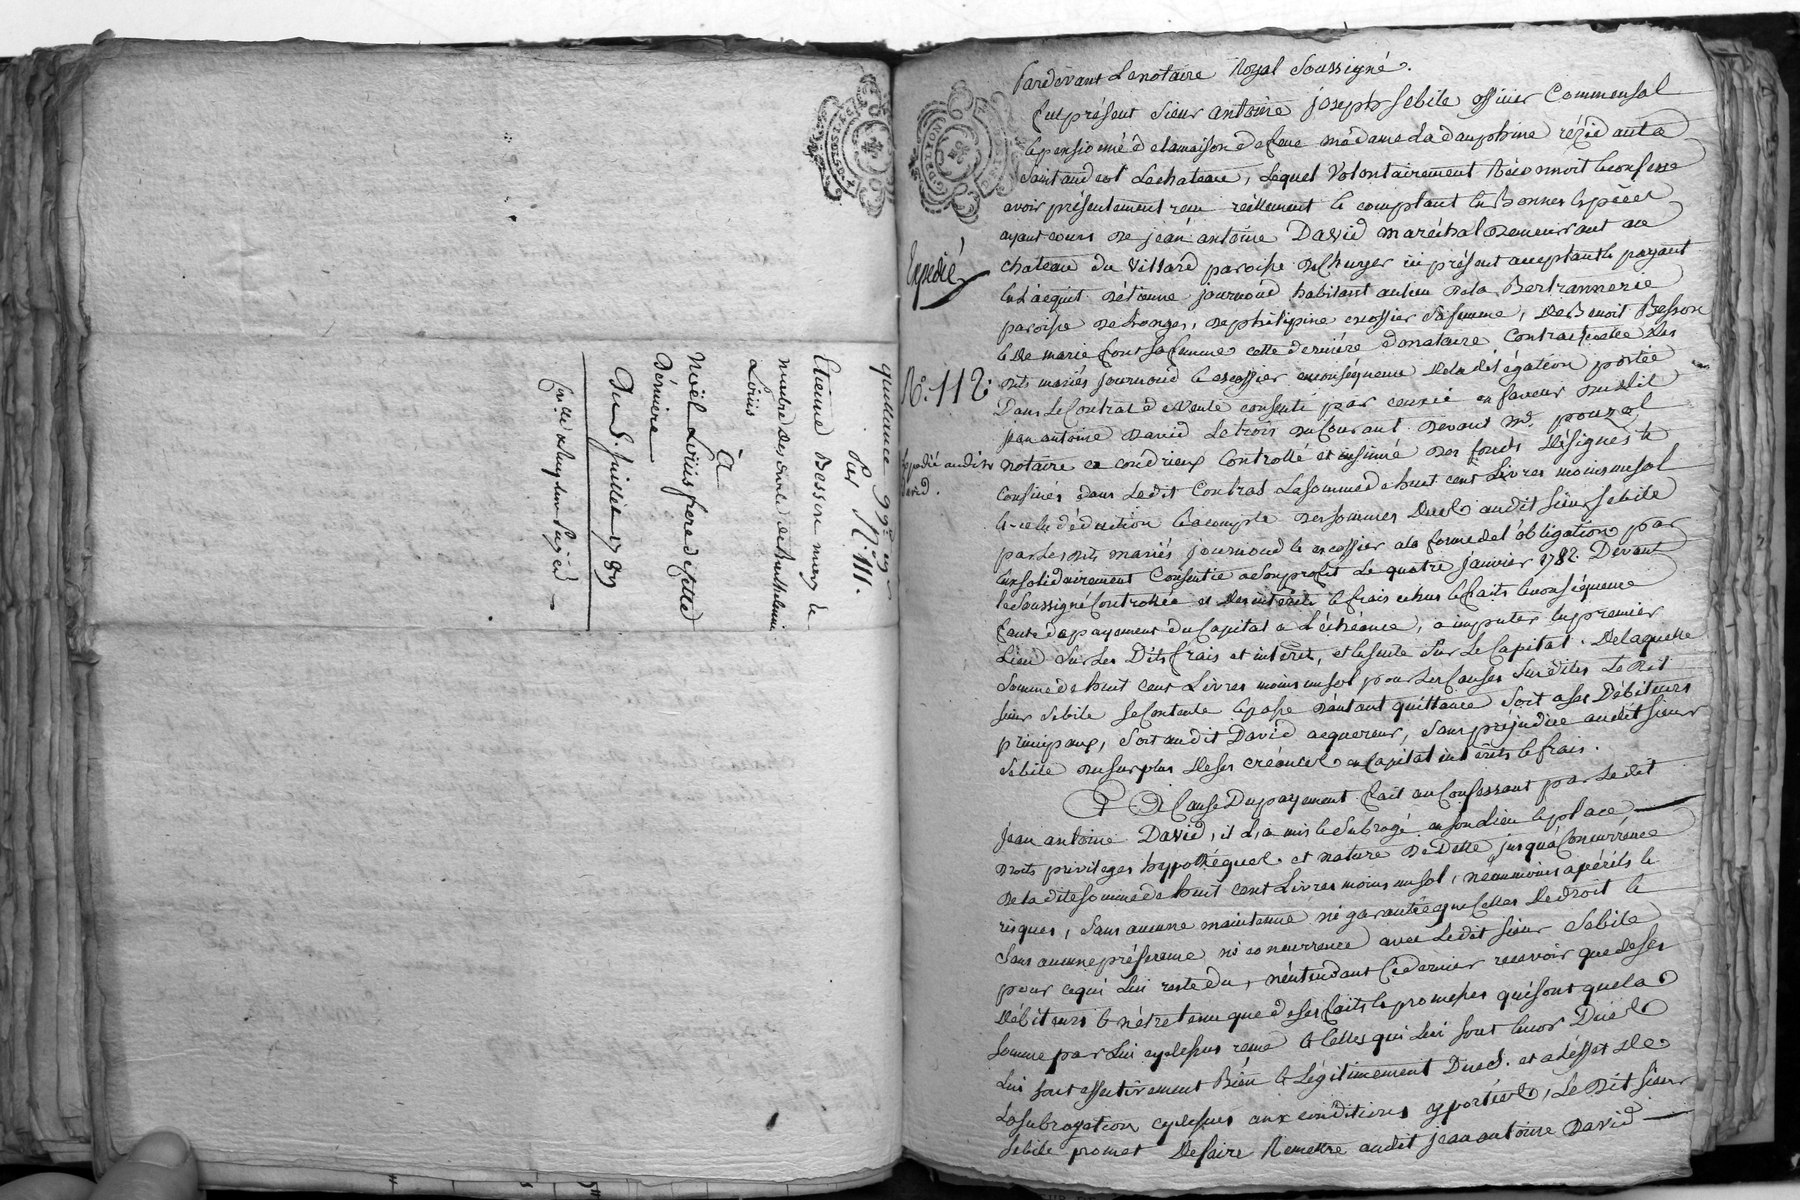 quittance
Par N.° 111.
Etienne Besson mary de
Louis
à
Noël Louis frere de cette
Dérniere
Du 5. juillet 1789
Expédié
N.° 112.
Expédié audit
David.
Pardevant le notaire Royal Soussigné.
fut présent sieur antoine joseph Sebile officier Commensal
et pensionné de la maison de feue madame La dauphine rézidant a
Saint andeol Le chateau, Lequel Volontairement Réconnoit et confesse
avoir présentement reçu réellement et comptant en Bonnes espèces
ayant cours de jean antoine David maréchal demeurant au
chateau du Villard paroisse de Chuyer ici présent acceptant et payant
en L'acquit d'étienne journoud habitant au lieu de la Bertrannerie
paroisse de Longes, de philipine escoffier sa femme, de Benoit Besson
et de marie font sa femme cette derniére donataire Contractuelle des
dits mariés journoud et escoffier en conséquence de la délégation portée
Dans Le Contrat de Vente consenti par ceux ci en faveur dudit
jean antoine David Le trois du Courant devant M.e pouzol
notaire a condrieux Controllé et insinué des fonds désignés et
Confinés dans Ledit Contrat La somme de huit cent Livres moins un sol
et ce en déduction et a compte des sommes Dues audit sieur Sebile
par Les dits mariés journoud et escoffier a la forme de l'obligation par
eux solidairement Consentie a son profit Le quatre janvier 1782. Devant
le Soussigné Controllée et des intérêts et frais en sus et faits en conséquence
faute de payement du Capital a L'échéance, a imputer en premier
Lieu sur Les Dits frais et intérêts, et ensuite sur Le Capital. De laquelle
Somme de huit cent Livres moins un sol pour Les Causes Susdites Le dit
sieur Sebile se Contente et passe d'autant quittance Soit a ses Débiteurs
principaux, Soit audit David acquereur, Sans préjudice audit sieur
Sebile du surplus de ses créances en Capital intérêts et frais.
A Cause Du payement fait au Confessant par Ledit
Jean antoine David, il L'a mis et Subrogé en son Lieu et place
droits privileges hypothéques et nature de Dette jusqu'a Concurrence
de la dite somme de huit cent Livres moins un sol, néanmoins a périls et
risques, Sans aucune maintenue ni garantie que Celles De droit et
Sans aucune préférence ni concurrence avec Ledit sieur Sebile
pour ce qui Lui reste du, n'entendant Ce dernier recevoir que de ses
Débiteurs et n'être tenu que de ses faits et promesses qui sont que la
Somme par Lui cy dessus reçue et Celles qui Lui sont encor Dues
Lui sont effectivement Bien et Légitimement Dues. et a l'effet de
La subrogation cy dessus aux conditions y portées, Le Dit sieur
Sebile promet De faire Remettre audit jean antoine David